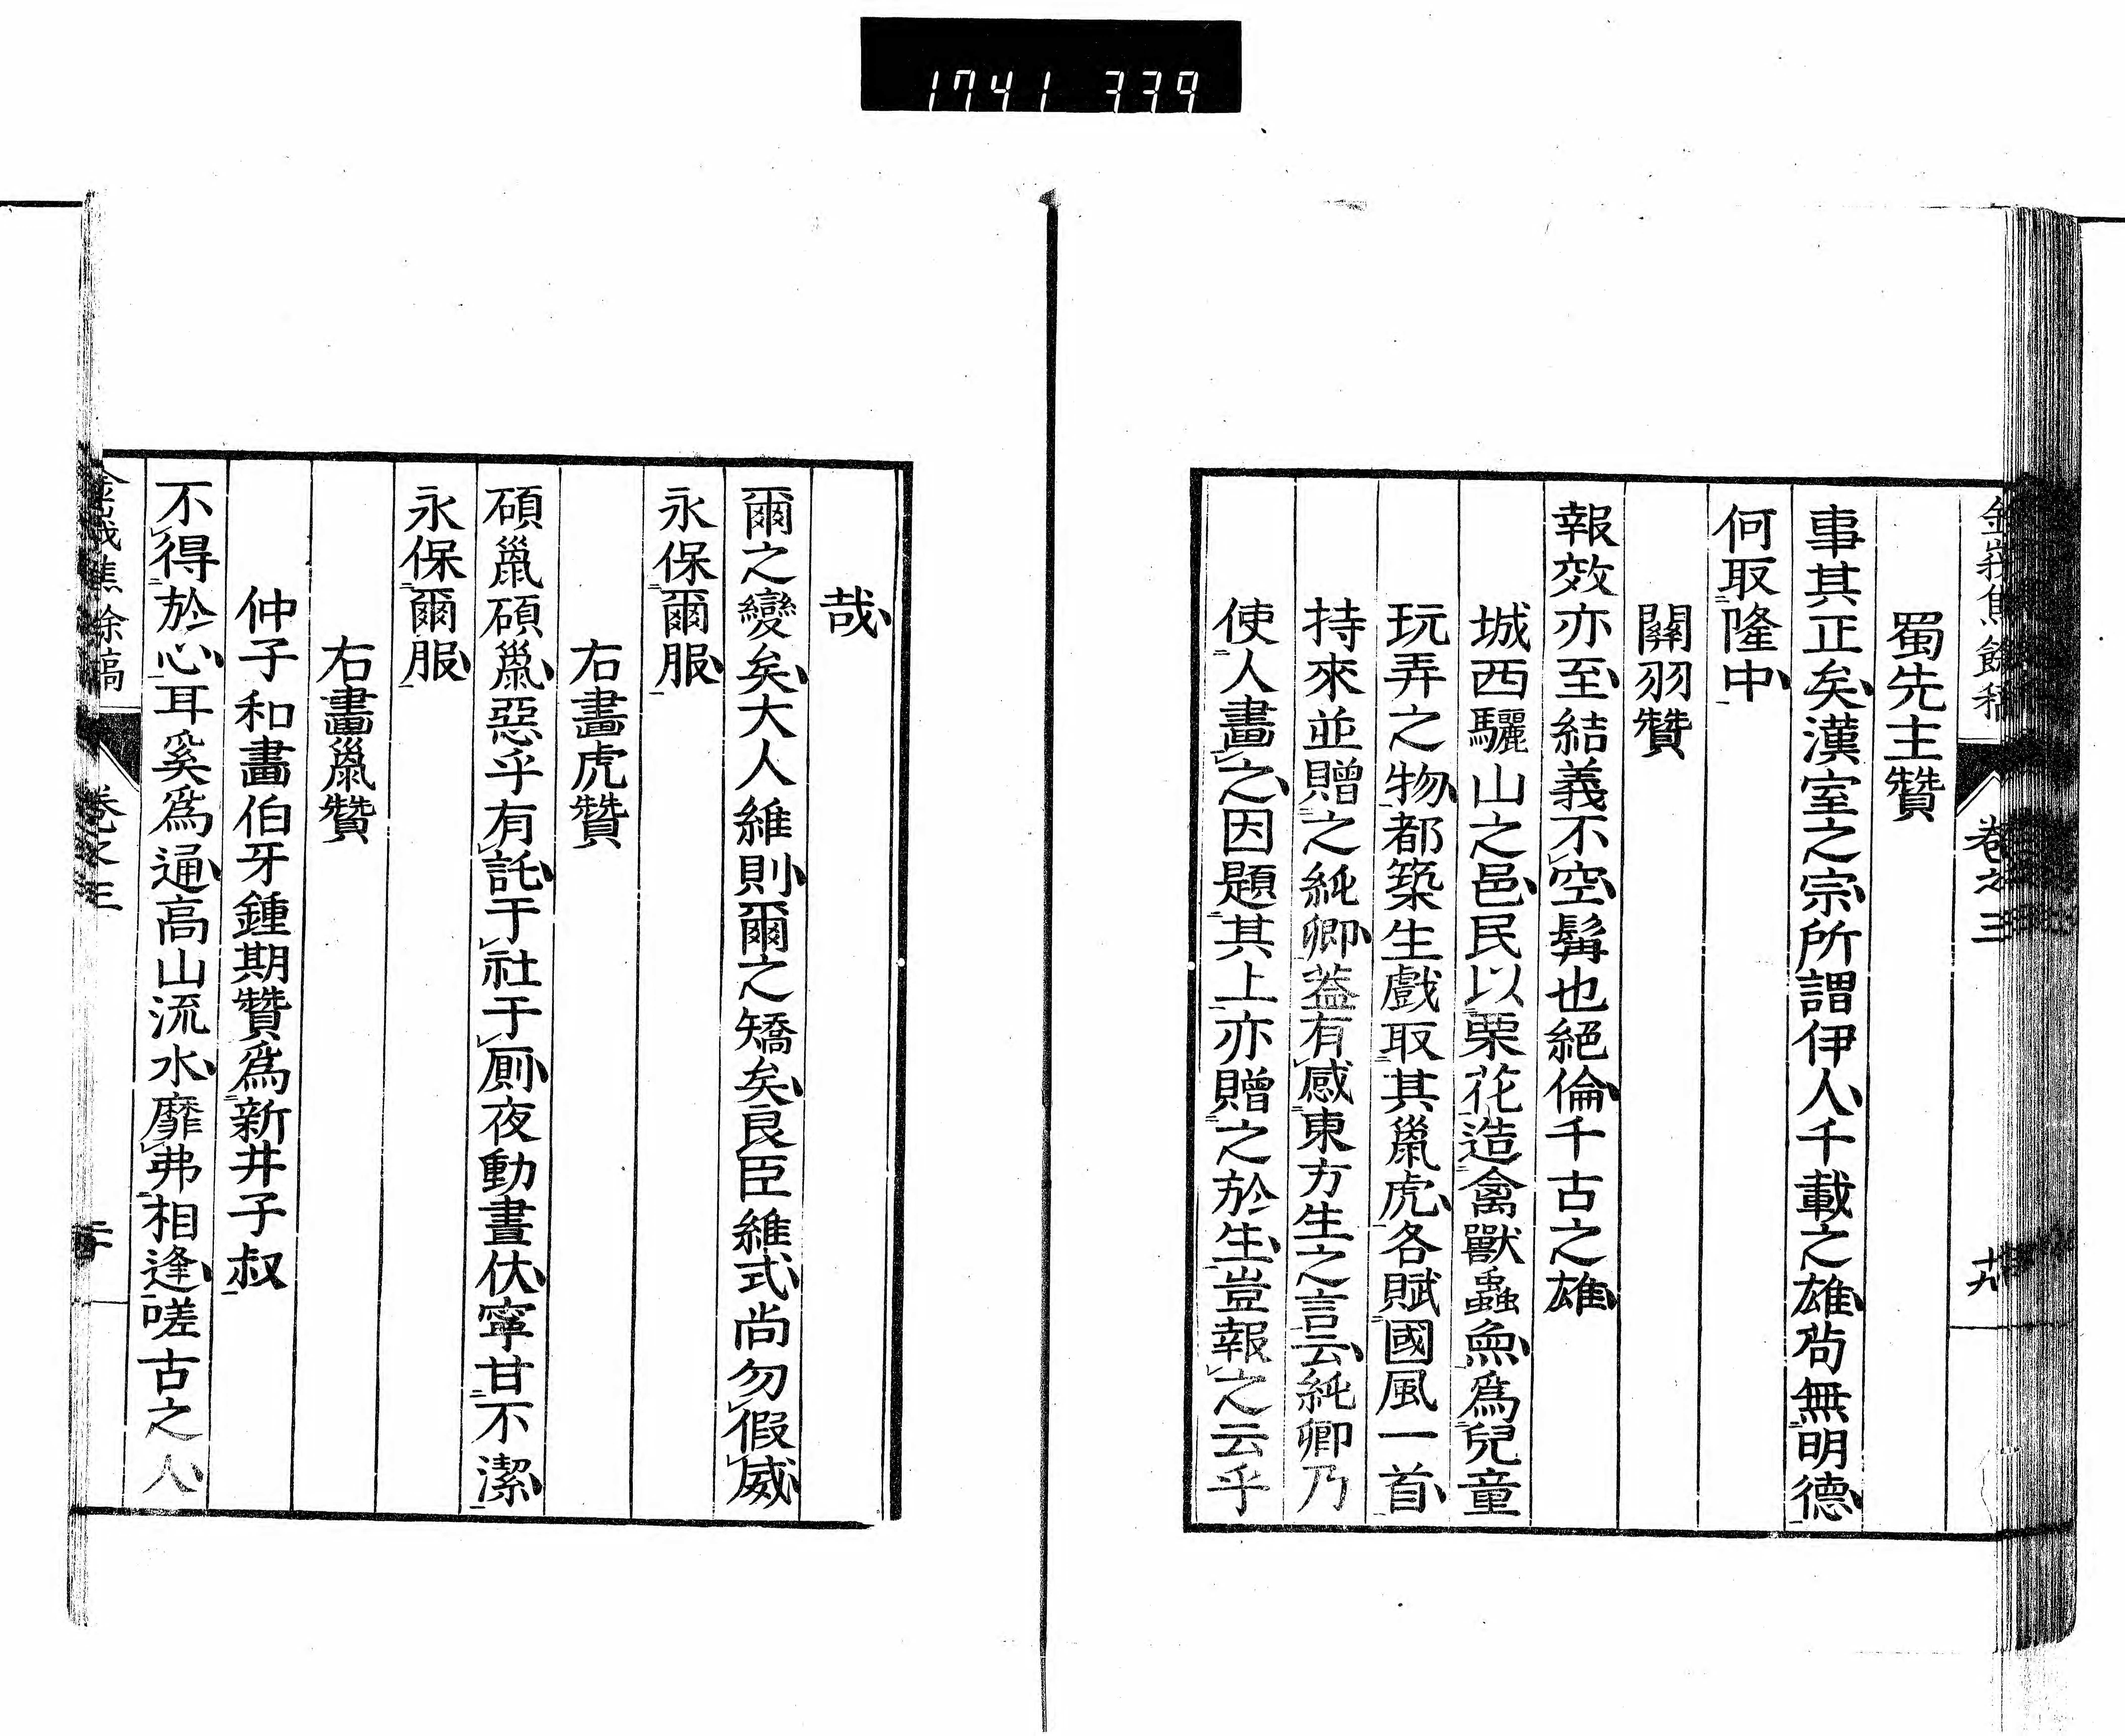 1741 339
金峩焦餘稿 卷之三 十九
蜀先主贊
事其正矣漢室之宗所謂伊人千載之雄茍無明德
何取隆中
關羽贊
報效亦至結義不空髯也絕倫千古之雄
城西驪山之邑民以栗花造禽獸蟲魚爲兒童
玩弄之物都築生戲取其鼠虎各賦國風一首
持來並贈之純卿葢有感東方生之言云純卿乃
使人畫之因題其上亦贈之於生豈報之云乎
哉
爾之變矣大人維則爾之矯矣良臣維式尚勿假威
永保爾服
右畫虎贊
碩鼠碩鼠惡乎有託于社于厠夜動晝伏寧甘不潔
永保爾服
右畫鼠贊
仲子和畫伯牙鍾期贊爲新井子叔
不得於心耳奚爲通高山流水靡弗相逢嗟古之人
金峩焦餘稿 卷之三